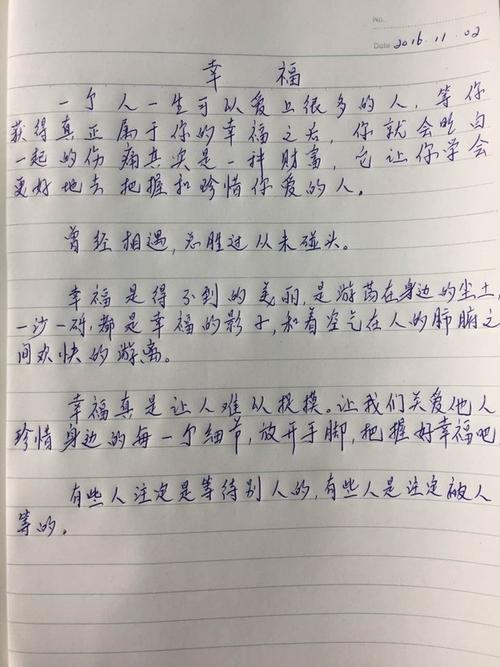 No.
Date 2016.11.02
幸 福
一个人一生可以爱上很多的人,等你
获得真正属于你的幸福之后,你就会明白
一起的伤痛其实是一种财富,它让你学会
更好地去把握和珍惜你爱的人。
曾经相遇,总胜过从未碰头。
幸福是得不到的美丽,是游荡在身边的尘土,
一沙一砾,都是幸福的影子,和着空气在人的肺腑之
间欢快的游离。
幸福真是让人难以捉摸。让我们关爱他人
珍惜身边的每一个细节,放开手脚,把握好幸福吧
有些人注定是等待别人的,有些人是注定被人
等的。